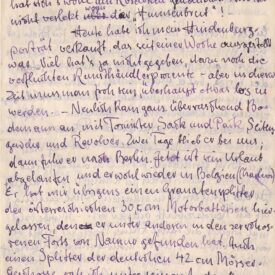 nicht verletzt über das "Hunnenbrut"!
Heute habe ich mein Hindenburg-
porträt verkauft, das seit einer Woche ausgestellt
war. Viel hat's ja nicht gegeben, dazu noch die
verfluchten Kunsthändlerprozente - aber in dieser
Zeit muss man froh sein, überhaupt etwas los zu
werden. - Neulich kam ganz überraschend Bo-
demann an, mit Tornister, Sack und Pack, Seiten-
gewehr und Revolver. Zwei Tage blieb er bei uns,
dann fuhr er nach Berlin. Jetzt ist sein Urlaub
abgelaufen und er wohl wieder in Belgien
E, hat mir übrigens einen Granatensplitter
der österreichischen 30,5 cm Motorbatterien hier-
gelassen, den er unter anderen in den zerschos-
senen Forts von Namur gefunden hat. Auch
einen Splitter der deutschen 42 cm Mörser-